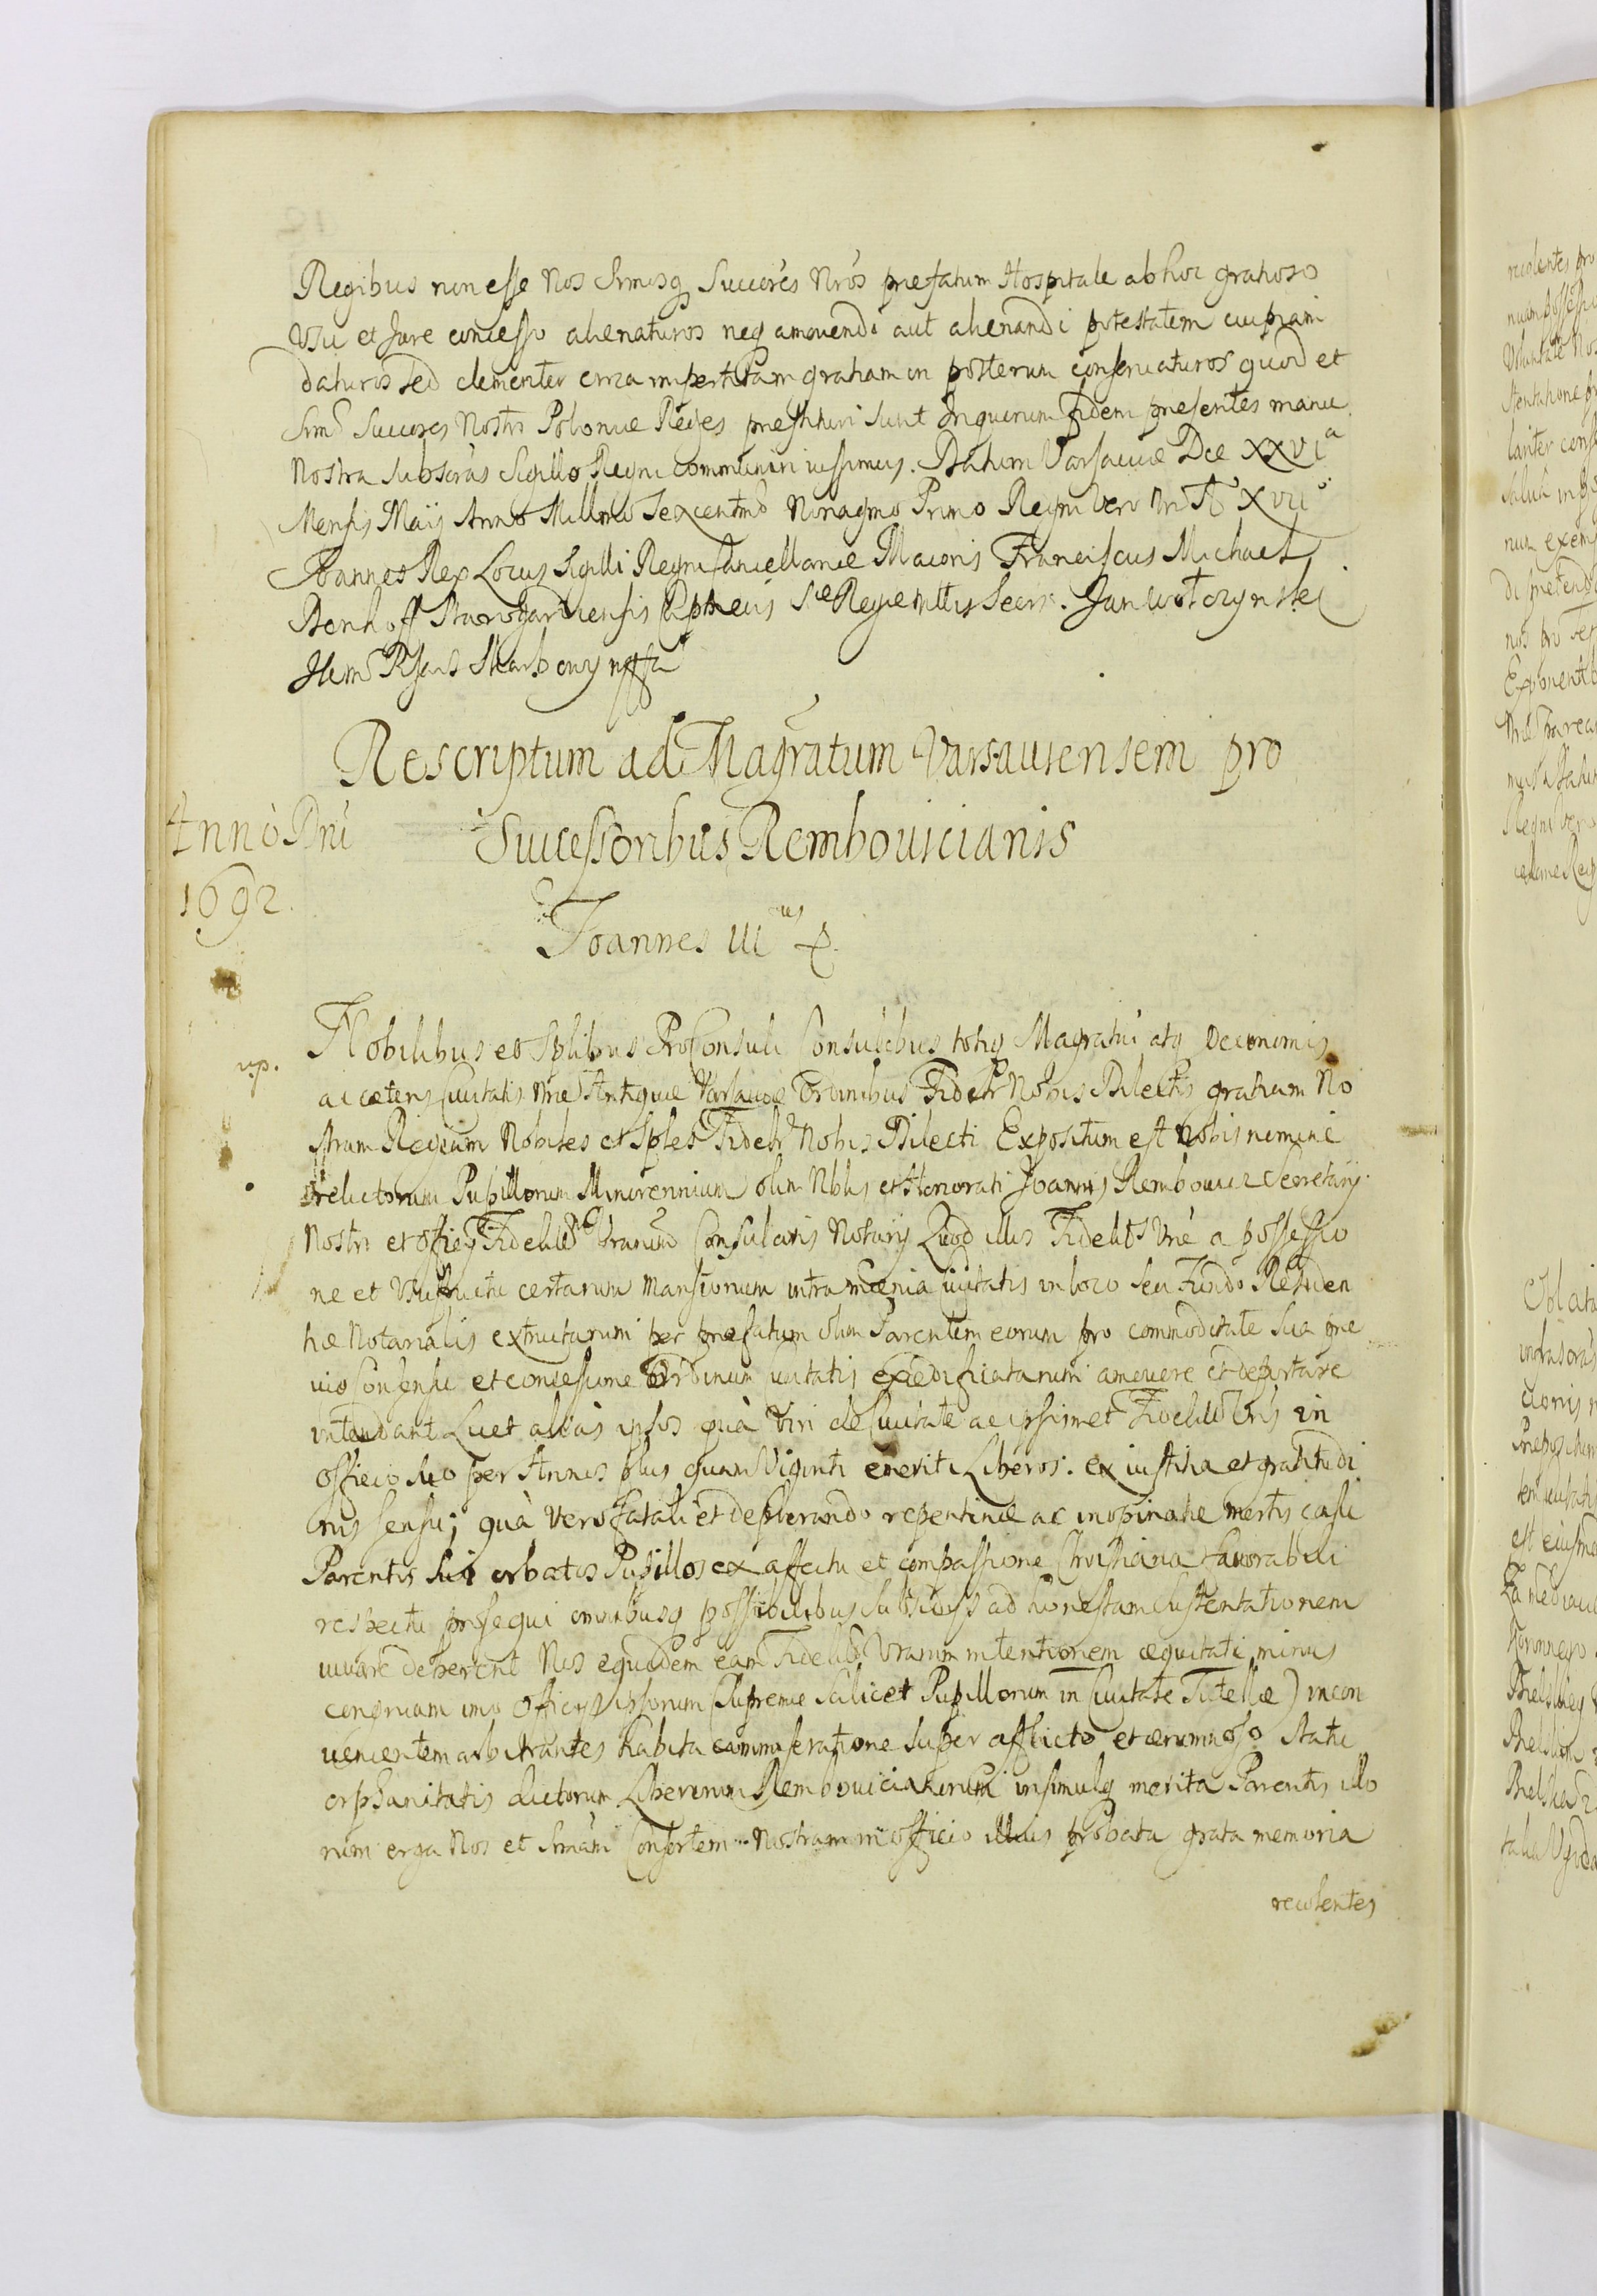 Regibus non esse Nos Srmosq Succores Nros præfatum Hospitale ab hoc gratioso
Usu et Jure concesso alienaturos neq amovendi aut alienandi potestatem cuipiam
daturos sed clementer circa impertitam gratiam in posterum conservaturos quod et
Srmi Succores Nostri Poloniæ Reges præstituri sunt In quorum fidem præsentes manu
Nostra subscras Sigillo Regni communiri iussimus. Datum Varsaviæ Die XXVIa
Mensis Maij Anno Millmo Sexcentmo Nonagmo Primo Regni vero Nri Ao XVIIo
Joannes Rex Locus Sigilli Regni Cancellariæ Maioris Franciscus Michael
Denhoff Starogardiensis Capneus Sæ Regiæ Mttis Secrs. Jan Wołczynski
Rescriptum ad Magratum Varsaviensem pro
Successoribus Rembouicianis
Anno Dni
1692.
Joannes IIIius
Nobilibus et Splibus ProConsuli Consulibus totiq Magratui atq Oeconomis
ac cæteris Civitatis Nræ Antiquæ Varsaviæ Ordinibus Fidelr Nobis Dilectis gratiam No
stram Regiam Nobiles et Sples Fideler Nobis Dilecti Expositum est Nobis nomine
relictorum Pupillorum Minorennium olim Nblis et Honorati Joannis Rembowicz Secretarij
Nostri et officij Fidelitum Vrarum Consularis Notarij Quod illos Fidelits Vræ a possessio
ne et Usufructu certarum Mansionum intra mœnia civitatis in loco seu Fundo Residen
tiæ Notarialis extructarum per præfatum olim Parentem eorum pro commoditate sua præ
vio Consensu et concessione Ordinum civitatis exædificatarum amovere et deportare
intendant Licet alias ipsos quà Viri de Civitate ac ipsismet Fidelitbs Vris in
officio suo per Annos plus quam Viginti emeriti Liberos. ex iustitia et gratitudi
nis sensu; quà vero fatali et deplorando repentinæ ac inopinatæ mortis casu
Parentis sui orbatos Pupillos ex affectu et compassione Christiana favorabili
respectu prosequi omnibusq possibilibus subsidijs ad honestam sustentationem
iuvare deberent Nos equidem eam Fidelitum Vrarum intentionem æquitati minus
congruam imo officio ipsorum (Supremæ scilicet Pupillorum in Civitate Tutellæ) incon
venientem arbitrantes habita commiseratione super afflicto et ærumnoso statu
orphanitatis dictorum Liberorum Rembouicianorum insimulq merita Parentis illo
rum erga Nos et Srmam Consortem Nostram in officio illius probata grata memoria
recolentes